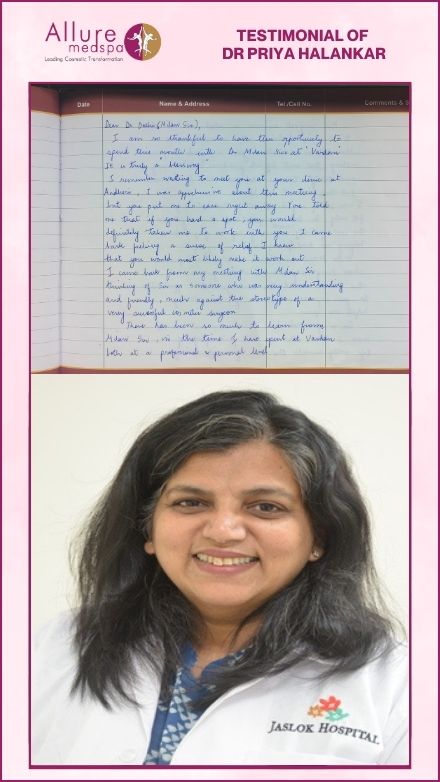 Allure
medspa
Leading Cosmetic Transformation
TESTIMONIAL OF
DR PRIYA HALANKAR
Date Name & Address Tel./Cell No. Comments & S
Dear Dr.
I am so thankful to have this opportunity to
spend this month with Dr Milan Sir at 'Vardaan'
It is truly a "blessing"
I remember waiting to meet you at your clinic at
Andheri, I was apprehensive about this meeting,
but you put me to ease right away. You told
me that if you had a spot, you would
definitely take me to work with you. I came
back feeling a sense of relief I knew
that you would most likely make it work out
I came back from my meeting with Milan Sir
thinking of Sir as someone who was very understanding
and friendly, much against the stereotype of a
very successful cosmetic surgeon
There has been so much to learn from
Milan Sir, in the time I have spent at Vardaan
both at a professional & personal level
JASLOK HOSPITAL